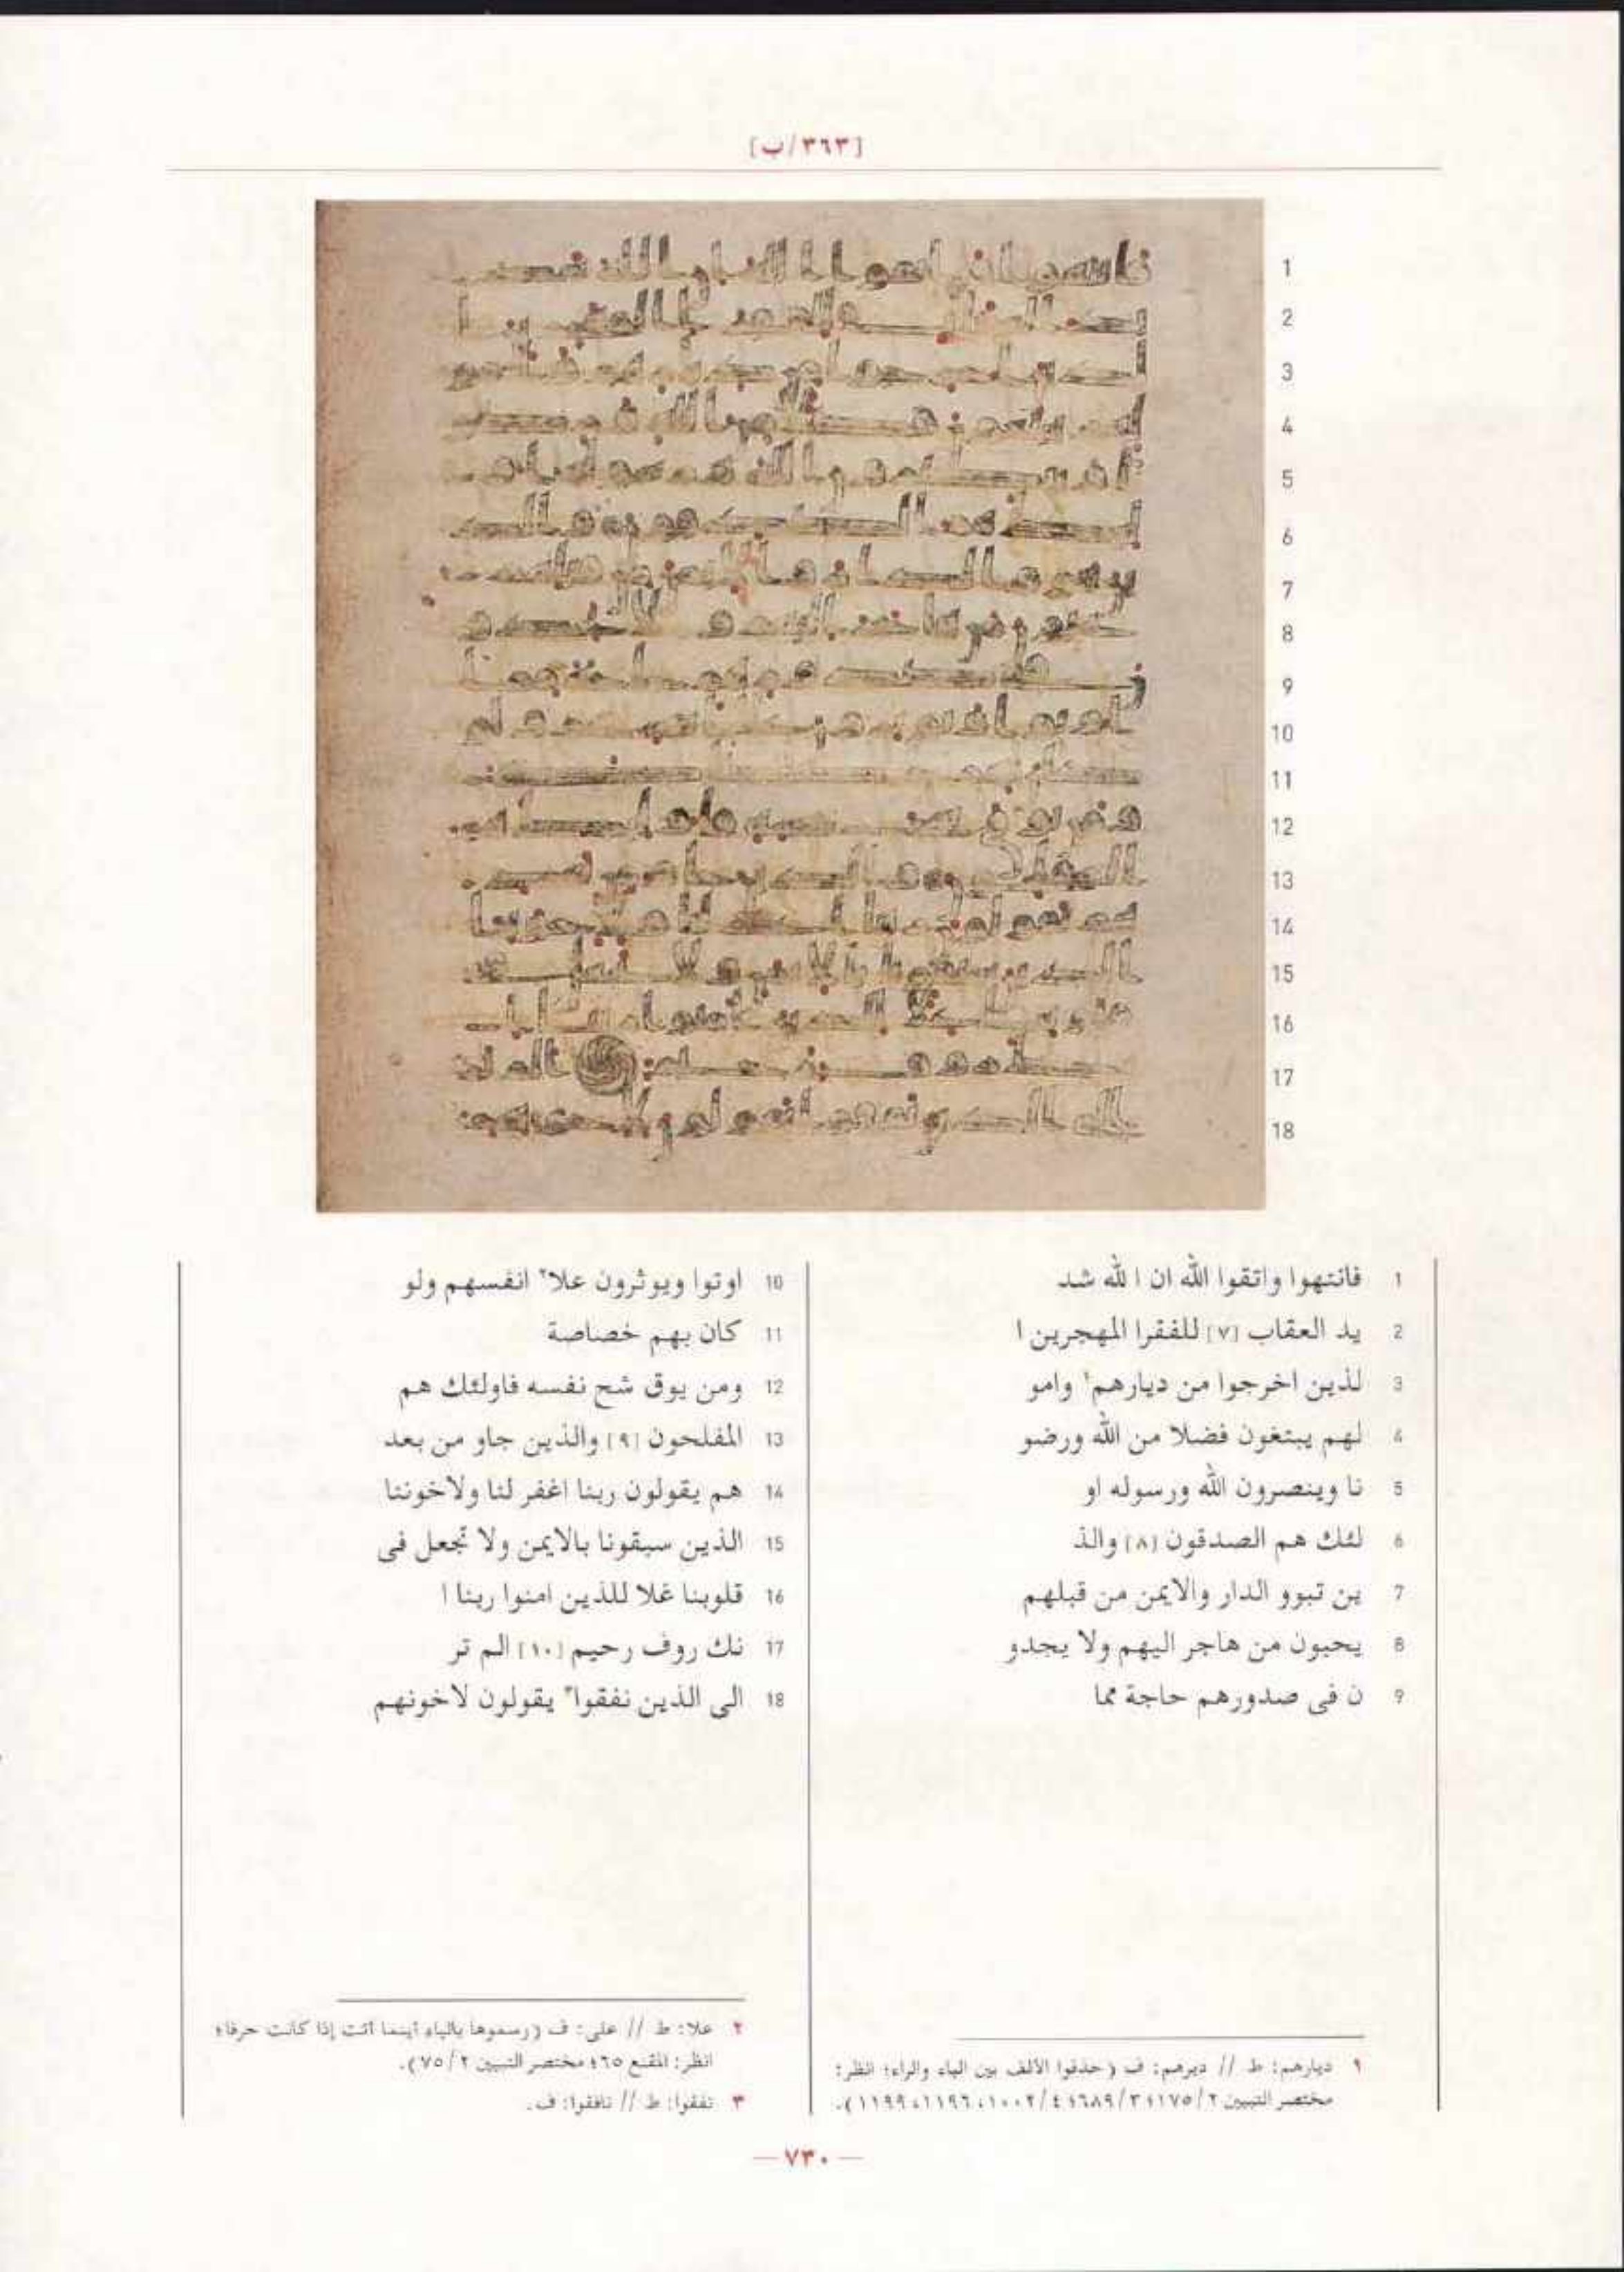 [٣٦٣/ب]
1 فانتهوا واتقوا الله ان ا لله شد
2 يد العقاب [٧] للفقرا المهجرين ا
3 لذين اخرجوا من ديارهم١ وامو
4 لهم يبتغون فضلا من الله ورضو
5 نا وينصرون الله ورسوله او
6 لئك هم الصدقون [٨] والذ
7 ين تبوو الدار والايمن من قبلهم
8 يحبون من هاجر اليهم ولا يجدو
9 ن فى صدورهم حاجة مما
10 اوتوا ويوثرون علا٢ انفسهم ولو
11 كان بهم خصاصة
12 ومن يوق شح نفسه فاولئك هم
13 المفلحون [٩] والذين جاو من بعد
14 هم يقولون ربنا اغفر لنا ولاخوننا
15 الذين سبقونا بالايمن ولا تجعل فى
16 قلوبنا غلا للذين امنوا ربنا ا
17 نك روف رحيم [١٠] الم تر
18 الى الذين نفقوا٣ يقولون لاخونهم
١ ديارهم: ط // ديرهم: ف (حذفوا الألف بين الياء والراء؛ انظر:
مختصر التبيين ١٧٥/٢؛ ٦٨٩/٣؛ ١٠٠٢/٤، ١١٩٦، ١١٩٩).
٢ علا: ط // على: ف (رسموها بالياء أينما أتت إذا كانت حرفا؛
انظر: المقنع ٦٥؛ مختصر التبيين ٧٥/٢).
٣ نفقوا: ط // نافقوا: ف.
— ٧٣٠ —